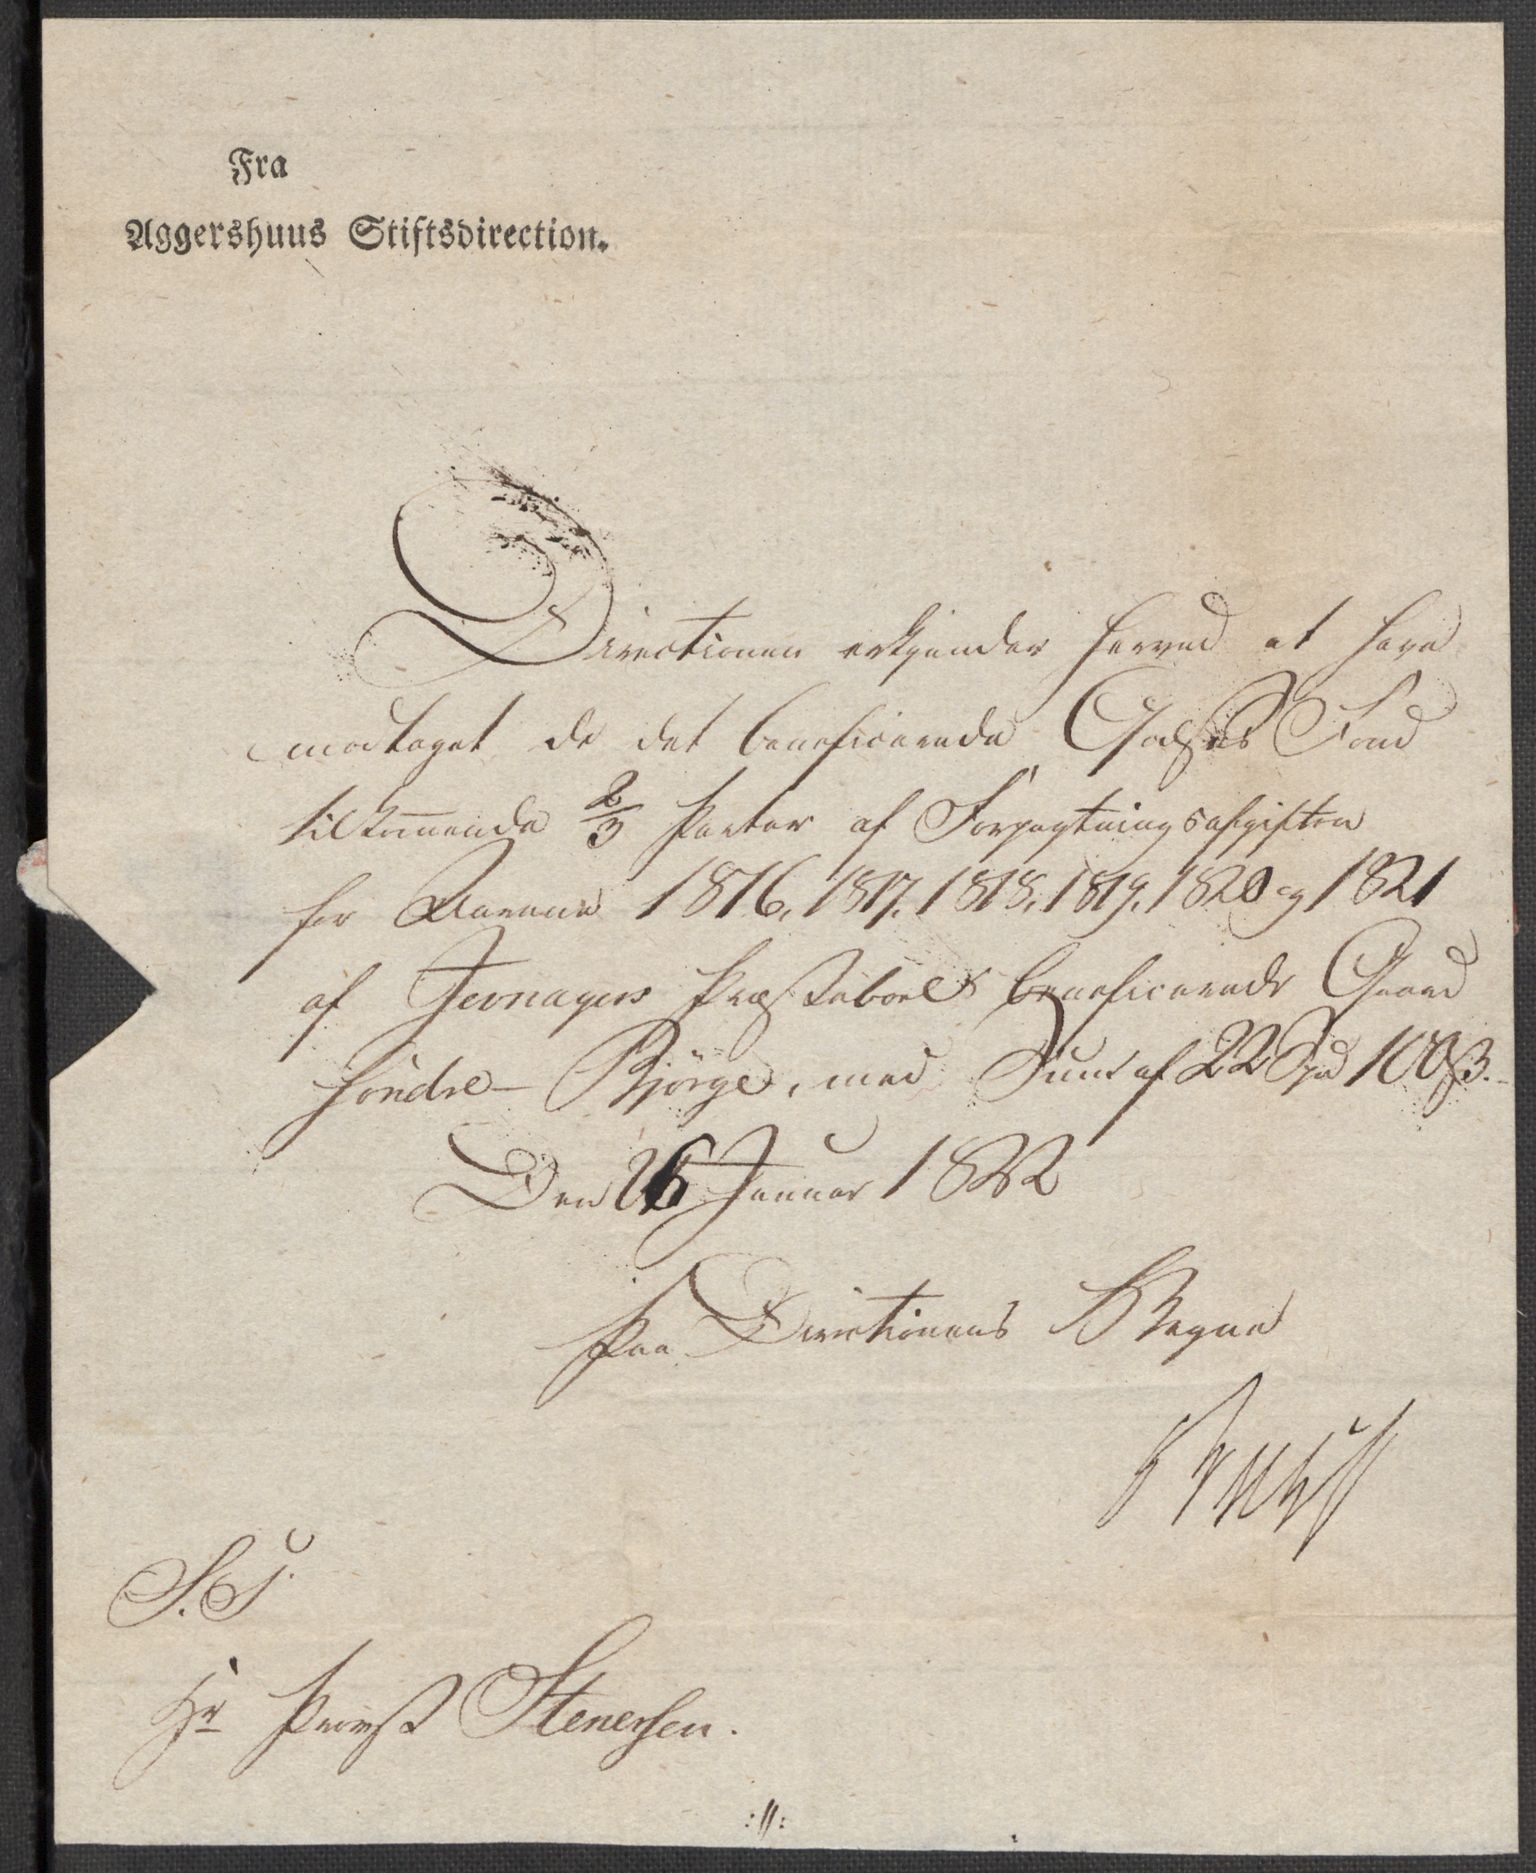 Fra
Aggershuus Stiftsdirection.
Directionen erkjender herved at have
modtaget de det beneficerede Godses Fond
tilkom̄ende 2/3 Parter af Forpagtningsafgiften
for Aarene 1816, 1817, 1818, 1819, 1820 og 1821
af Jevnagers Præstebols beneficerede Gaard
Söndre Bjørge, med Sum af 22 Spd 100 ß.
Den 26 Januar 1822
Paa Directionens Vegne
S. T.
Hr Provst Stenersen.
://: